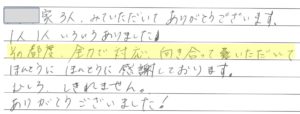 家3人、みていただいて ありがとうございます。
1人1人 いろいろ ありました!
その都度、全力で対応、向き合って 頂いて
ほんとうに ほんとうに 感謝しております。
むしろ しきれません。
ありがとうございました!